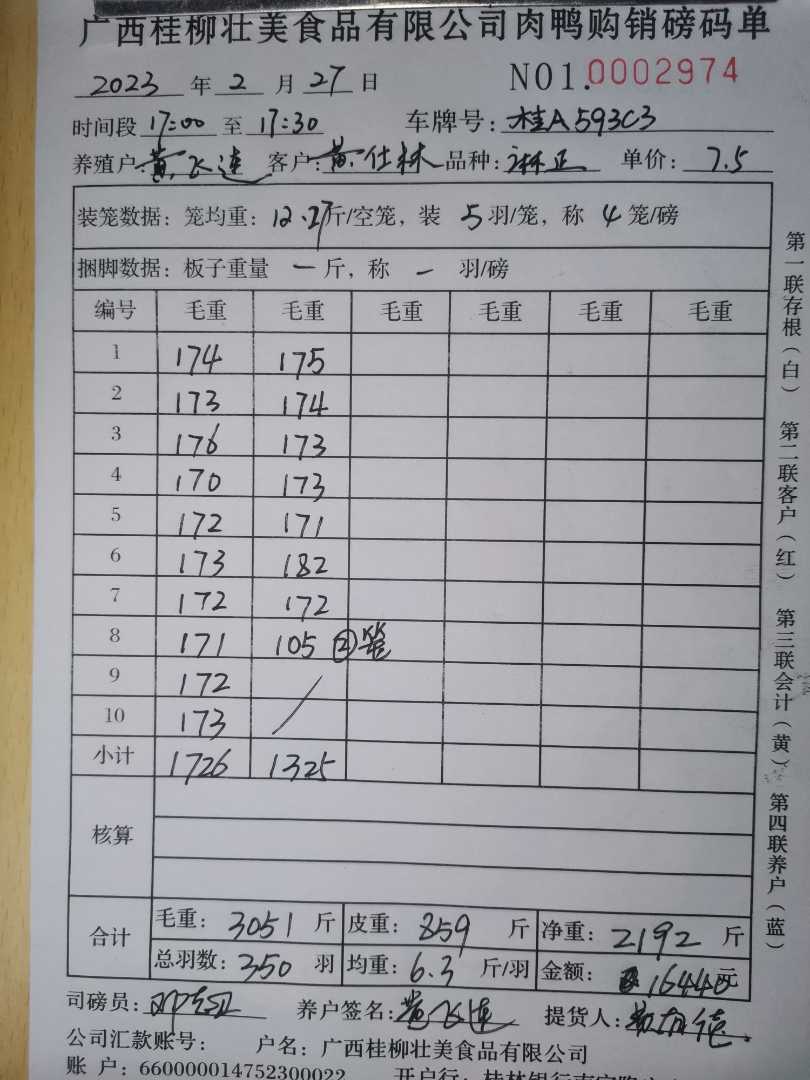 广西桂柳壮美食品有限公司肉鸭购销磅码单
2023 年 2 月 27 日 NO1.0002974
时间段 17:00 至 17:30 车牌号: 桂A593C3
养殖户: 黄飞连 客户: 黄仕林 品种: 正 单价: 7.5
装笼数据: 笼均重: 12.27斤/空笼, 装 5 羽/笼, 称 4 笼/磅
捆脚数据: 板子重量 一 斤, 称 一 羽/磅
编号 毛重 毛重 毛重 毛重 毛重 毛重
1 174 175
2 173 174
3 176 173
4 170 173
5 172 171
6 173 182
7 172 172
8 171 105 ②笼
9 172 /
10 173
小计 1726 1325
核算
合计 毛重: 3051 斤 皮重: 859 斤 净重: 2192 斤
总羽数: 350 羽 均重: 6.3 斤/羽 金额: 16440元
司磅员: 养户签名: 黄飞连 提货人:
公司汇款账号: 户名: 广西桂柳壮美食品有限公司
账 户: 660000014752300022 开户行: 桂林银行南宁
第一联存根(白) 第二联客户(红) 第三联会计(黄) 第四联养户(蓝)